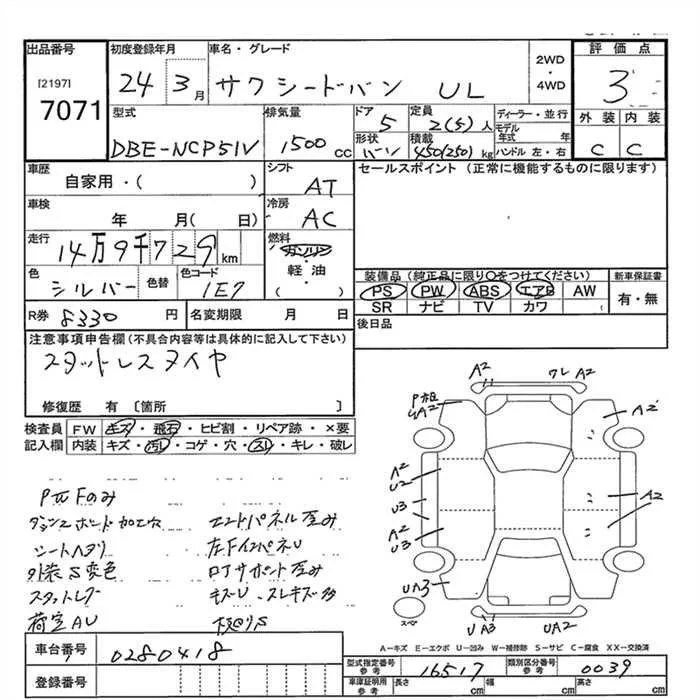 出品番号 初度登録年月 車名・グレード 2WD ・ 4WD 評価点
[2197]
7071
24 3月 サクシードバン UL 3
型式 排気量 ドア 定員 ディーラー・並行 外装 内装
DBE-NCP51V 1500cc 5 2(5)人 モデル年式 年 C C
形状 積載 ハンドル 左・右
バン 450(250)kg
車歴 自家用・( ) シフト AT セールスポイント(正常に機能するものに限ります)
車検 年 月( 日) 冷房 AC
走行 14万9千729km 燃料 ガソリン・軽油・( )
色 シルバー 色替 色コード 1E7
装備品(純正品に限り○をつけてください) 新車保証書
PS PW ABS エアB AW 有・無
SR ナビ TV カワ
R券 8330円 名変期限 月 日 後日品
注意事項申告欄(不具合内容等は具体的に記入して下さい)
スタットレスタイヤ
修復歴 有〔箇所 〕
検査員 FW キズ・飛石・ヒビ割・リペア跡・×要
記入欄 内装 キズ・汚レ・コゲ・穴・スレ・キレ・破レ
A2 ワレ A2
A2
A2
U2
U3
A2
U3
A2
UA3
U A3 UA2
スペア
エンドパネル歪み
シートヘタリ
外装S変色
荷室AU キズU、スレキズ多
A-キズ E-エクボ U-凹み W-補修跡 S-サビ C-腐食 XX-交換済
車台番号 0280418
登録番号
型式指定番号 参考 16517 類別区分番号 参考 0039
車庫証明用 参考 長さ cm 幅 cm 高さ cm